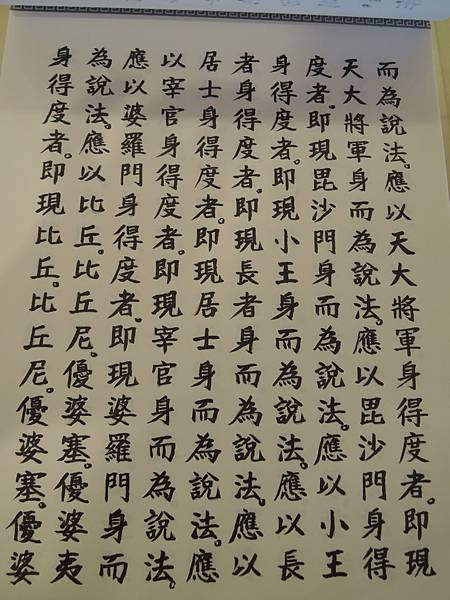 而為說法。應以天大將軍身得度者。即現
天大將軍身而為說法。應以毘沙門身得
度者。即現毘沙門身而為說法。應以小王
身得度者。即現小王身而為說法。應以長
者身得度者。即現長者身而為說法。應以
居士身得度者。即現居士身而為說法。應
以宰官身得度者。即現宰官身而為說法。
應以婆羅門身得度者。即現婆羅門身而
為說法。應以比丘。比丘尼。優婆塞。優婆夷
身得度者。即現比丘。比丘尼。優婆塞。優婆